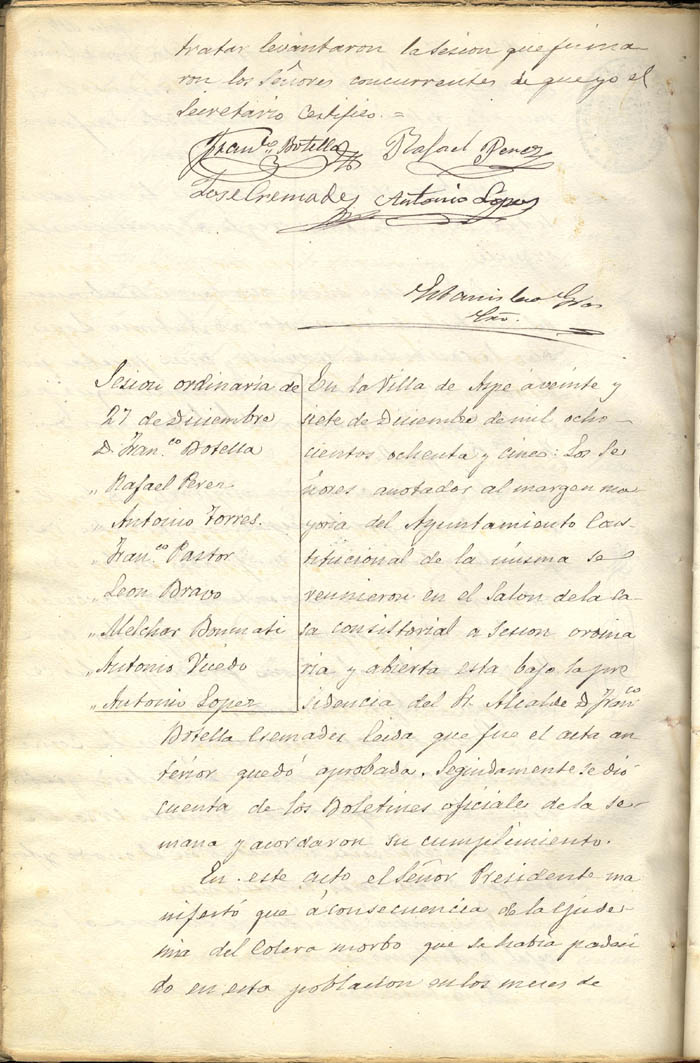 tratar levantaron la sesion que firma
ron los Señores concurrentes de que yo el
Secretario Certifico.=
Fran.co Botella Rafael Perez
Jose Cremades Antonio Lopez
Estanislao
Srio.
Sesion ordinaria de
27 de Diciembre
D. Fran.co Botella
" Rafael Perez
Antonio Torres.
" Fran.co Pastor
Leon Bravo
" Melchor Bonmati
" Antonio Vicedo
" Antonio Lopez
En la Villa de Aspe a veinte y
siete de Diciembre de mil ocho-
cientos ochenta y cinco: Los Se
ñores anotados al margen ma
yoria del Ayuntamiento Cons
titucional de la misma se
reunieron en el Salon de la ca
sa consistorial a sesion ordina
ria y abierta esta bajo la pre
sidencia del Sr. Alcalde D. Fran.co
Botella Cremades leida que fue el acta an
terior quedó aprobada. Seguidamente se dió
cuenta de los Boletines oficiales de la se-
mana y acordaron su cumplimiento.
En este acto el Señor Presidente ma
nifestó que á consecuencia de la Epide-
mia del Colera morbo que se habia padeci
do en esta poblacion en los meses de